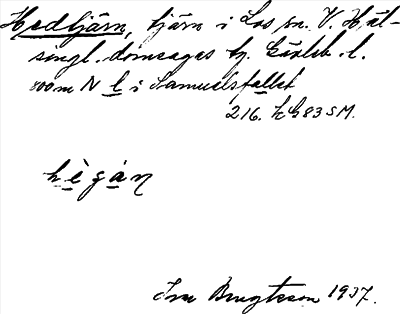 Hedtjärn, tjärn i Los sn. V. Häl-
singl. domsagas tj. Gävleb. l.
800 m N l i Samuelsfallet
216. hG83SM.
hègán
Ivar Bengtsson 1937.